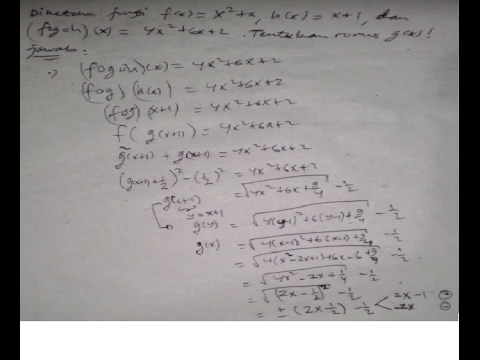 Diketahui fungsi f(x) = x²+x, h(x) = x+1, dan
(fogoh)(x) = 4x²+6x+2. Tentukan rumus g(x)!
Jawab:
(fogoh)(x) = 4x²+6x+2
(fog)(h(x)) = 4x²+6x+2
(fog)(x+1) = 4x²+6x+2
f(g(x+1)) = 4x²+6x+2
g²(x+1) + g(x+1) = 4x²+6x+2
(g(x+1)+1/2)² - (1/2)² = 4x²+6x+2
g(x+1) = √(4x²+6x+9/4) - 1/2
y = x+1
g(y) = √(4(y-1)²+6(y-1)+9/4) - 1/2
g(x) = √(4(x-1)²+6(x-1)+9/4) - 1/2
= √(4(x²-2x+1)+6x-6+9/4) - 1/2
= √(4x²-2x+1/4) - 1/2
= √(2x-1/2)² - 1/2
= ± (2x-1/2) - 1/2 < 2x-1 (+)
-2x (-)